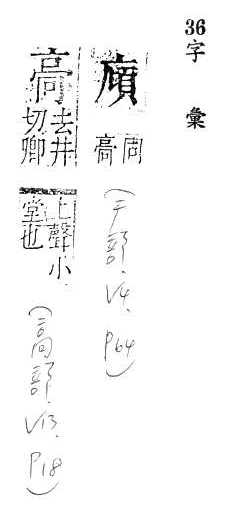 36 字彙
廎 同䯧
(广部.V4.P64)
䯧 去井切卿上聲小堂也
(高部.V13.P18)